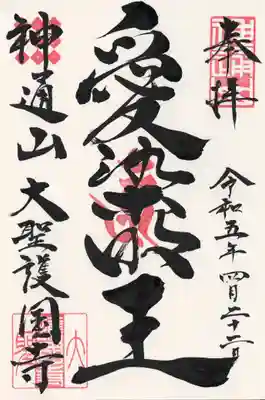 奉拝
令和五年四月二十二日
愛染明王
神通山 大聖護国寺